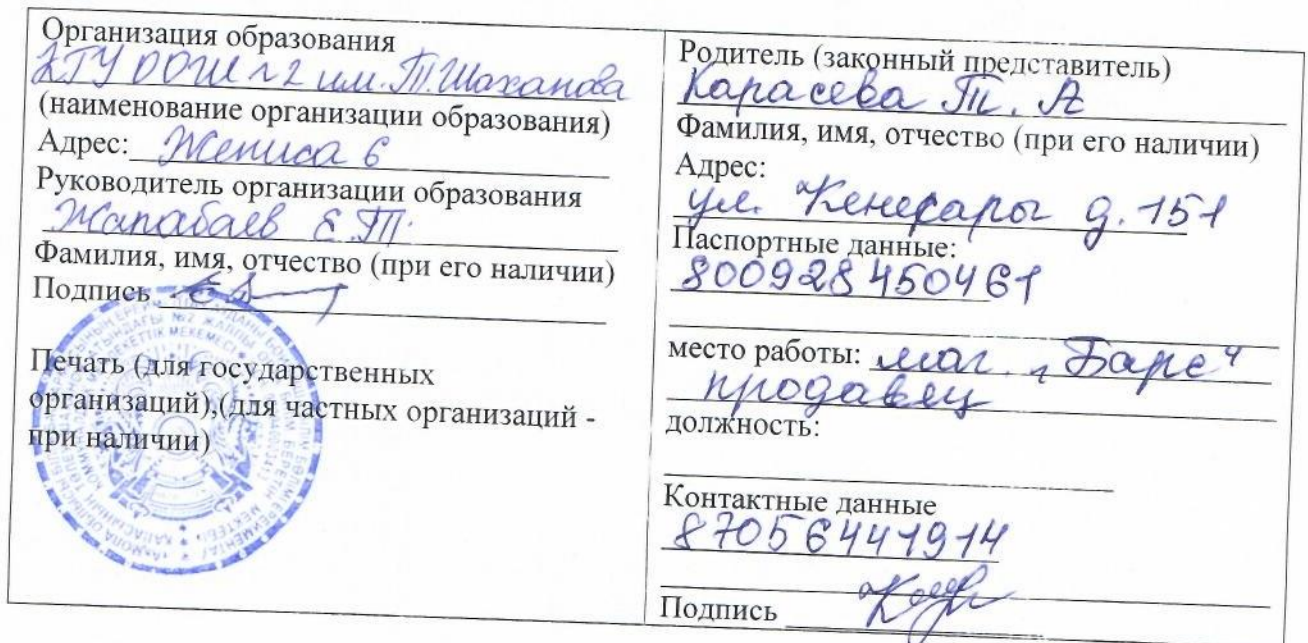 Организация образования
КГУ ООШ №2 им. Т. Шаханова
(наименование организации образования)
Адрес: Жениса 6
Руководитель организации образования
Жапабаев Е.Т.
Фамилия, имя, отчество (при его наличии)
Подпись
Печать (для государственных
организаций),(для частных организаций -
при наличии)
Родитель (законный представитель)
Карасева Т. А
Фамилия, имя, отчество (при его наличии)
Адрес:
ул. Кенесары д. 151
Паспортные данные:
800928450461
место работы: маг. „Барс“
продавец
должность:
Контактные данные
87056441914
Подпись